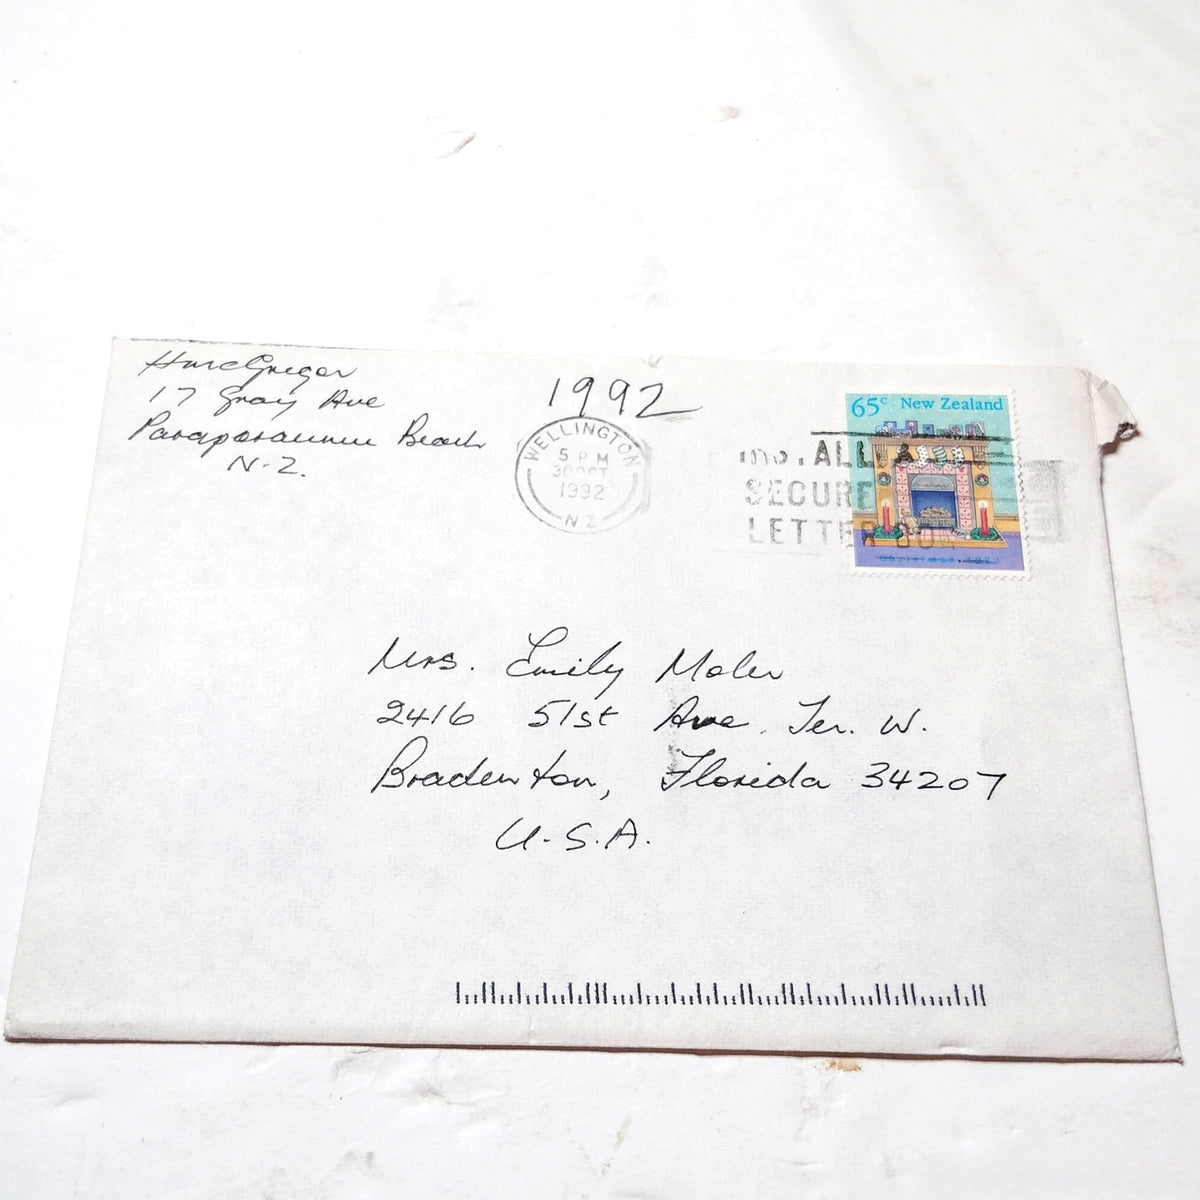 H McGregor
17 Gray Ave
Paraparaumu Beach
N.Z.
1992
WELLINGTON
5 PM
30 OCT
1992
NZ
65c New Zealand
INSTALL A
SECURE
LETTER BOX
Christmas 1992
Mrs. Emily Moler
2416 51st Ave. Ter. W.
Bradenton, Florida 34207
U.S.A.